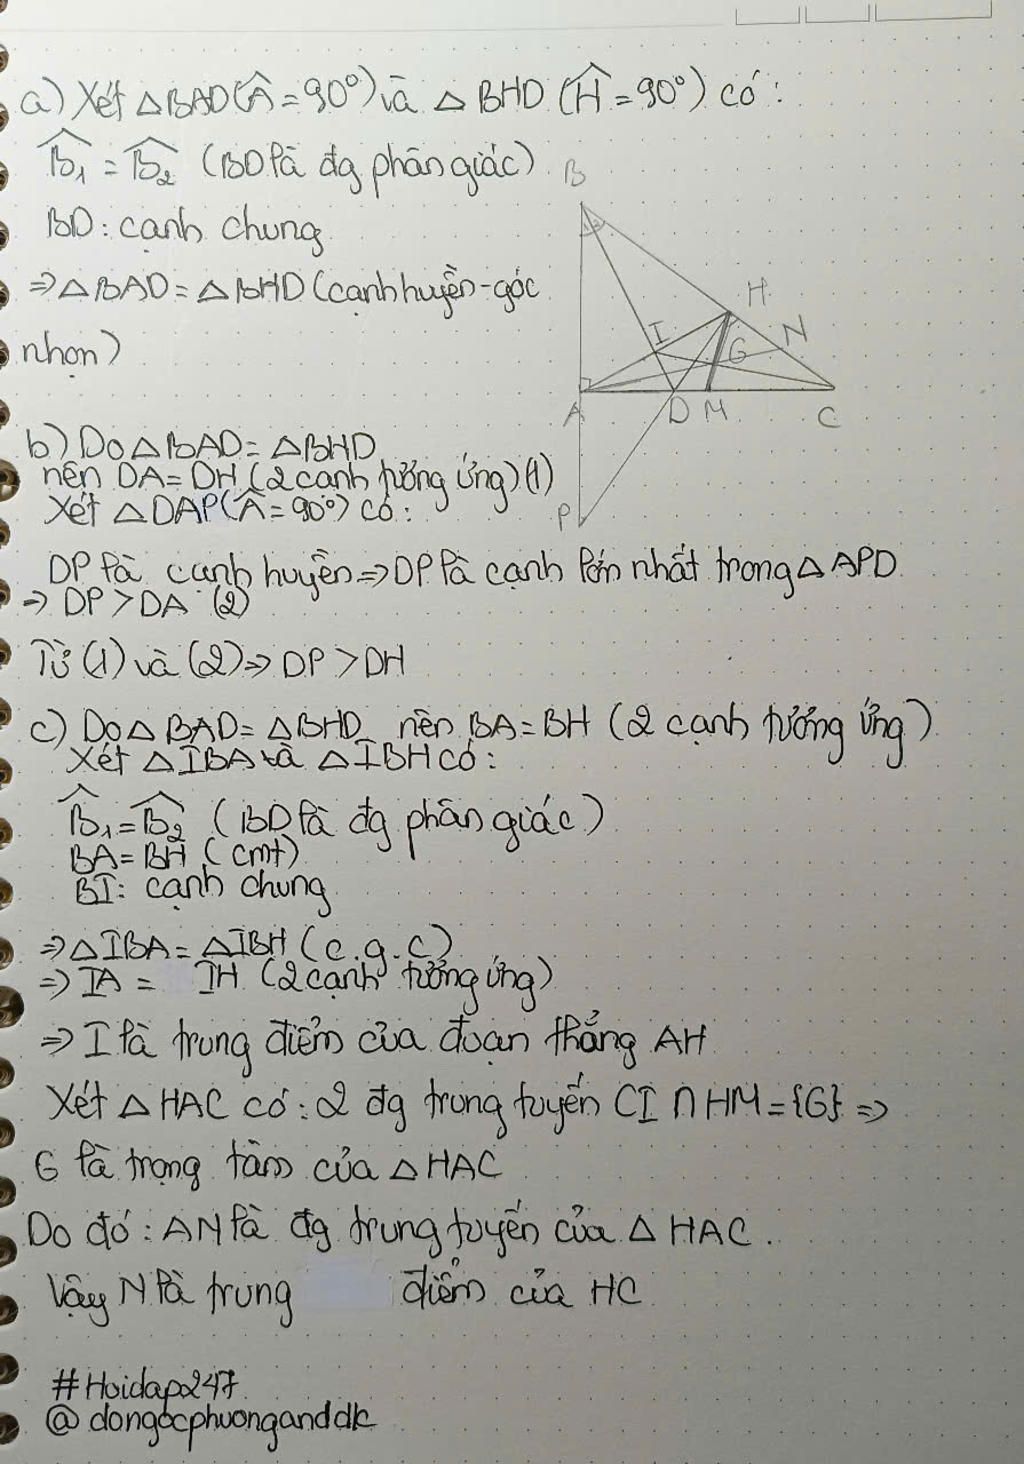 a) Xét △BAD(Â=90°) và △BHD (Ĥ=90°) có:
B̂₁ = B̂₂ (BD là đg phân giác)
BD: cạnh chung
⇒ △BAD = △BHD (cạnh huyền-góc
nhọn)
B
1 2
H
I
N
G
A
D
M
C
P
b) Do △BAD = △BHD
nên DA = DH (2 cạnh tưởng ứng) (1)
Xét △DAP(Â=90°) có:
DP là cạnh huyền ⇒ DP là cạnh lớn nhất trong △APD
⇒ DP > DA (2)
Từ (1) và (2) ⇒ DP > DH
c) Do △BAD = △BHD nên BA = BH (2 cạnh tưởng ứng)
Xét △IBA và △IBH có:
B̂₁ = B̂₂ (BD là đg phân giác)
BA = BH (cmt)
BI: cạnh chung
⇒ △IBA = △IBH (c.g.c)
⇒ IA = IH (2 cạnh tưởng ứng)
⇒ I là trung điểm của đoạn thẳng AH
Xét △HAC có: 2 đg trung tuyến CI ∩ HM = {G} ⇒
G là trọng tâm của △HAC
Do đó: AN là đg trung tuyến của △HAC.
Vậy N là trung điểm của HC
#Hoidap247
@dongocphuonganddk